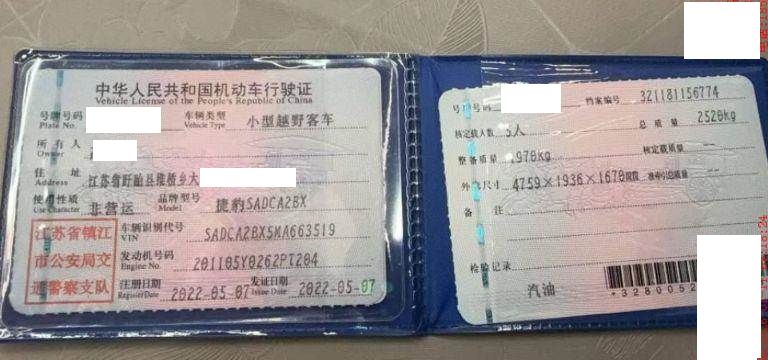 中华人民共和国机动车行驶证
Vehicle License of the People's Republic of China
号牌号码
Plate No.
车辆类型
Vehicle Type
小型越野客车
所有人
Owner
住址
Address
江苏省盱眙县维桥乡大
使用性质
Use Character
非营运
品牌型号
Model
捷豹SADCA2BX
江苏省镇江
市公安局交
通警察支队
车辆识别代号
VIN
SADCA2BX5MA663519
发动机号码
Engine No.
201105Y0262PT204
注册日期
Register Date
2022-05-07
发证日期
Issue Date
2022-05-07
号牌号码
档案编号
321181156774
核定载人数
5人
总质量
2520kg
整备质量
1970kg
核定载质量
--
外廓尺寸
4759×1936×1670mm
准牵引总质量
--
备注
检验记录
汽油
*3280052